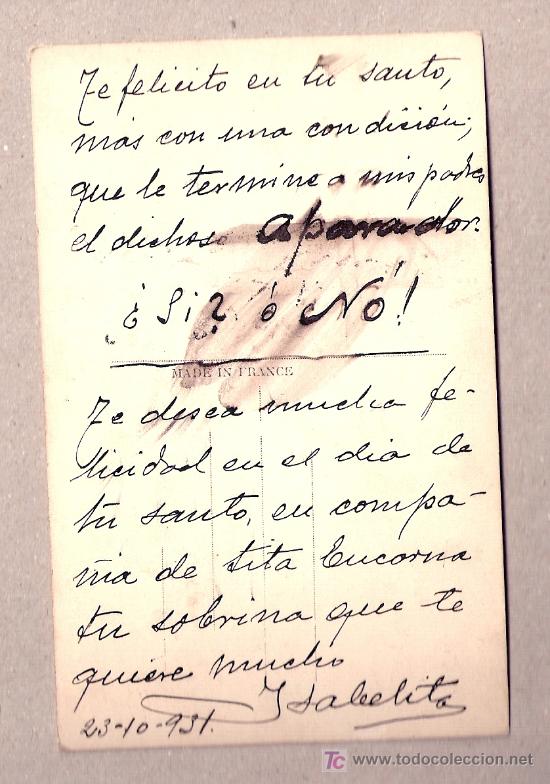 Te felicito en tu santo,
más con una condición;
que le termine a mis padres
el dichoso Aparador.
¿Si? ó Nó!
MADE IN FRANCE
Te desea mucha fe-
licidad en el dia de
tu santo, en compa-
ñia de tita Encarna
tu sobrina que te
quiere mucho
Isabelita
23-10-931.
TC www.todocoleccion.net